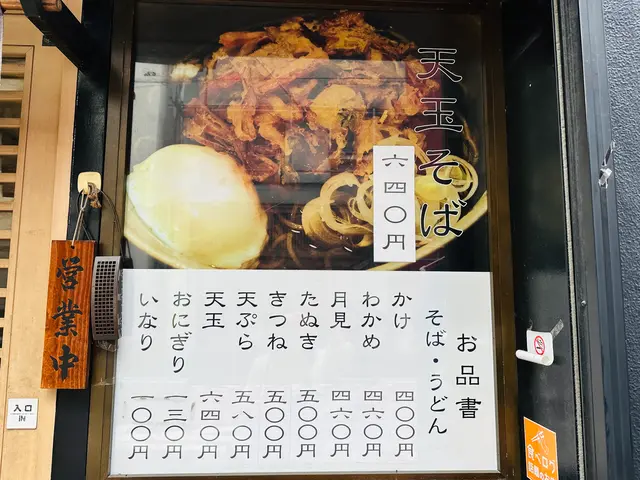 天玉そば
六四〇円
お品書
そば・うどん
かけ 四〇〇円
わかめ 四六〇円
月見 四六〇円
たぬき 五〇〇円
きつね 五〇〇円
天ぷら 五八〇円
天玉 六四〇円
おにぎり 一三〇円
いなり 一〇〇円
営業中
入口
IN
食べログ